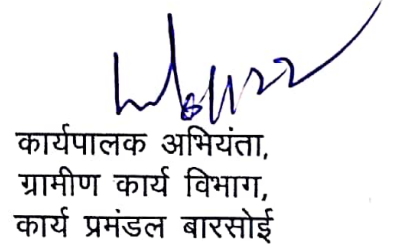 कार्यपालक अभियंता,
ग्रामीण कार्य विभाग,
कार्य प्रमंडल बारसोई